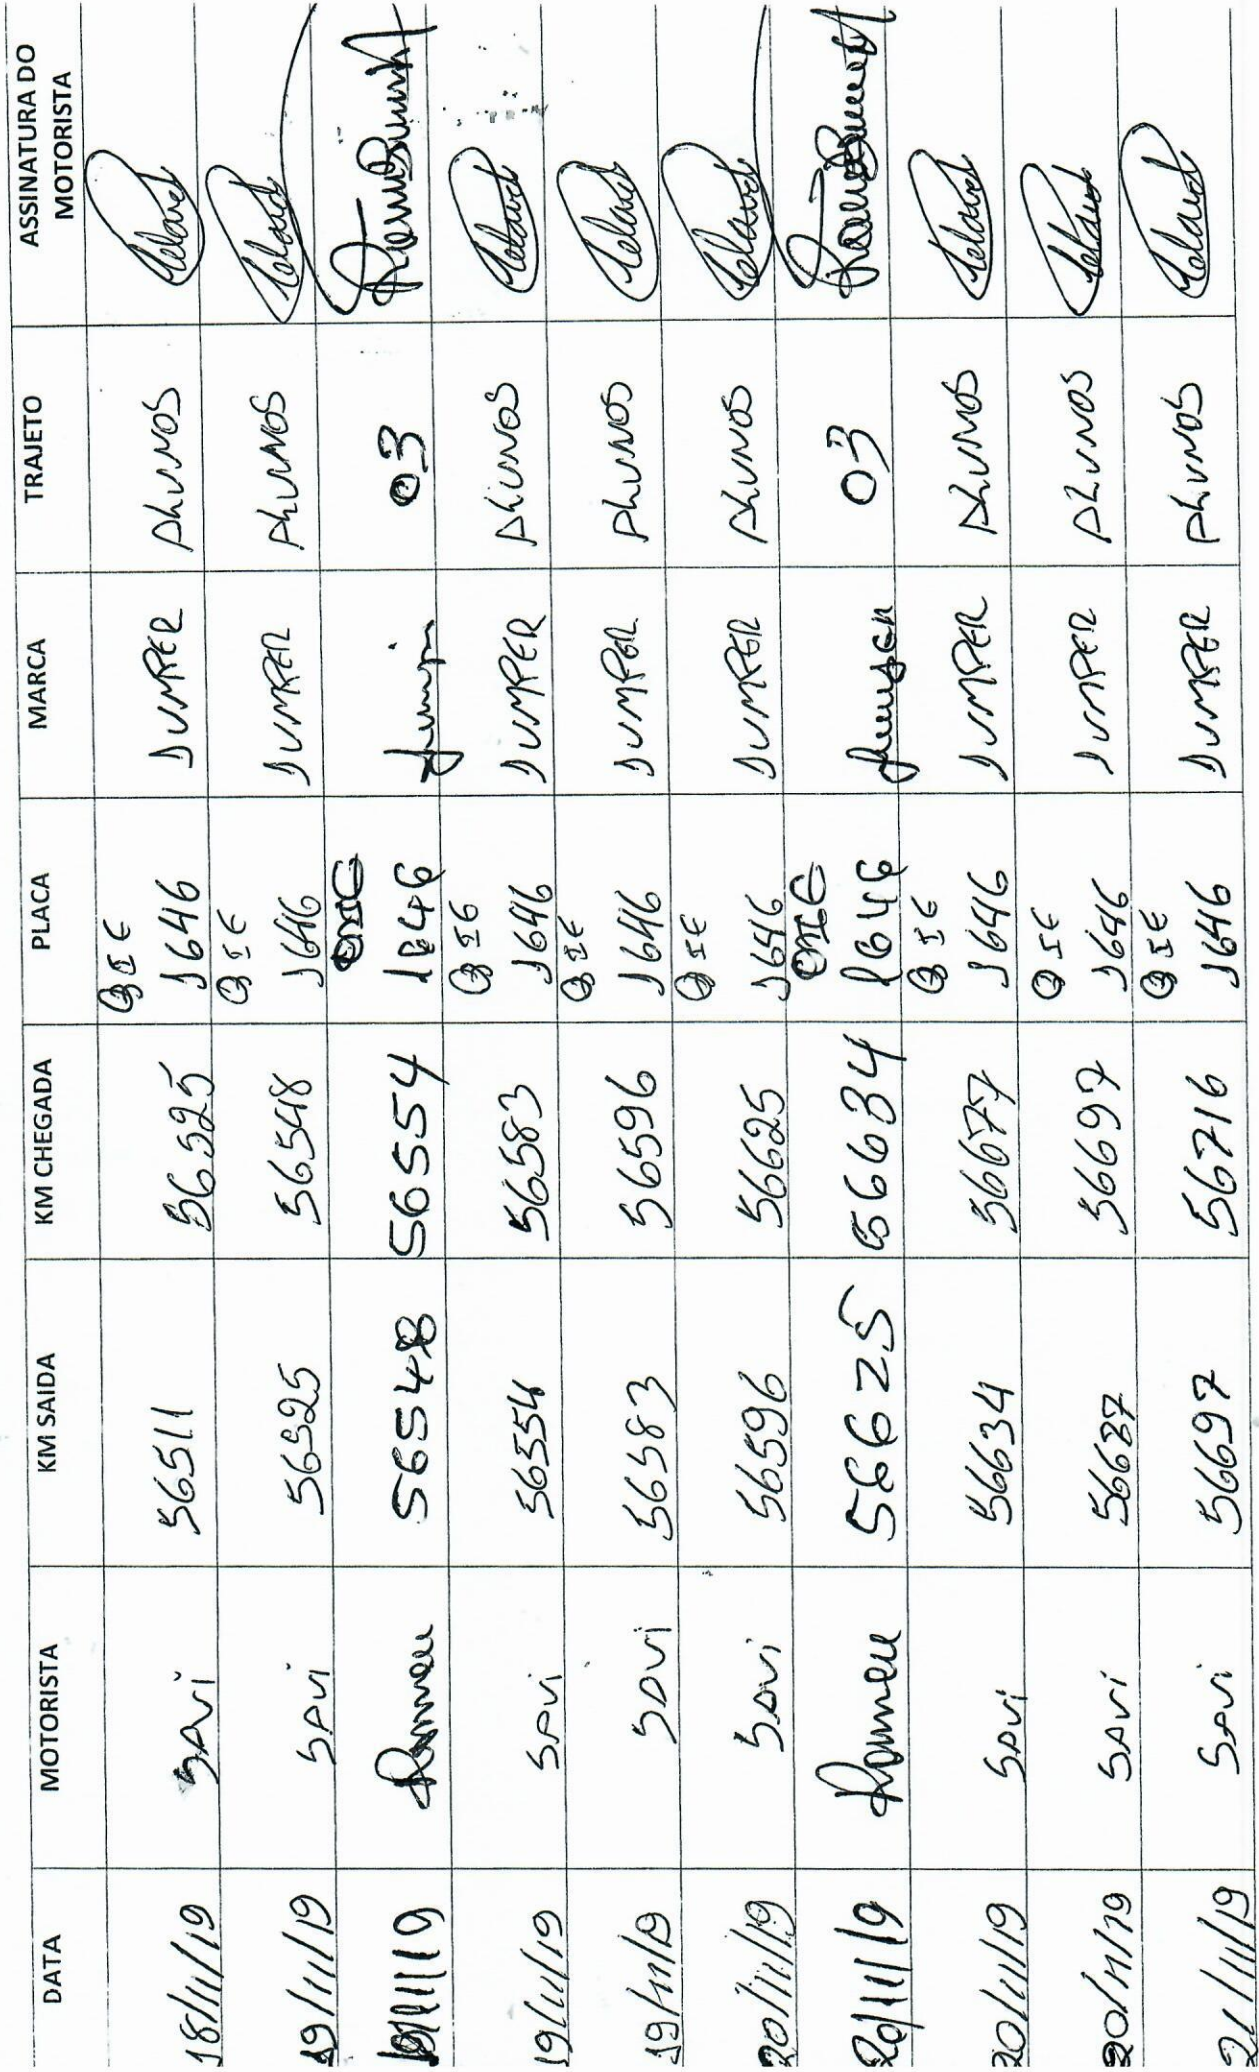 DATA MOTORISTA KM SAIDA KM CHEGADA PLACA MARCA TRAJETO ASSINATURA DO MOTORISTA
18/11/19 SAVI 56511 56525 QIE 1646 JUMPER ALUNOS
19/11/19 SAVI 56525 56548 QIE 1646 JUMPER ALUNOS
19/11/19 Romeu 56548 56554 1646 03
19/11/19 SAVI 56554 56583 QIE 1646 JUMPER ALUNOS
19/11/19 SAVI 56583 56596 QIE 1646 JUMPER ALUNOS
20/11/19 SAVI 56596 56625 QIE 1646 JUMPER ALUNOS
20/11/19 Romeu 56625 56634 1646 03
20/11/19 SAVI 56634 56677 QIE 1646 JUMPER ALUNOS
20/11/19 SAVI 56697 QIE 1646 JUMPER ALUNOS
21/11/19 SAVI 56697 56716 QIE 1646 JUMPER ALUNOS